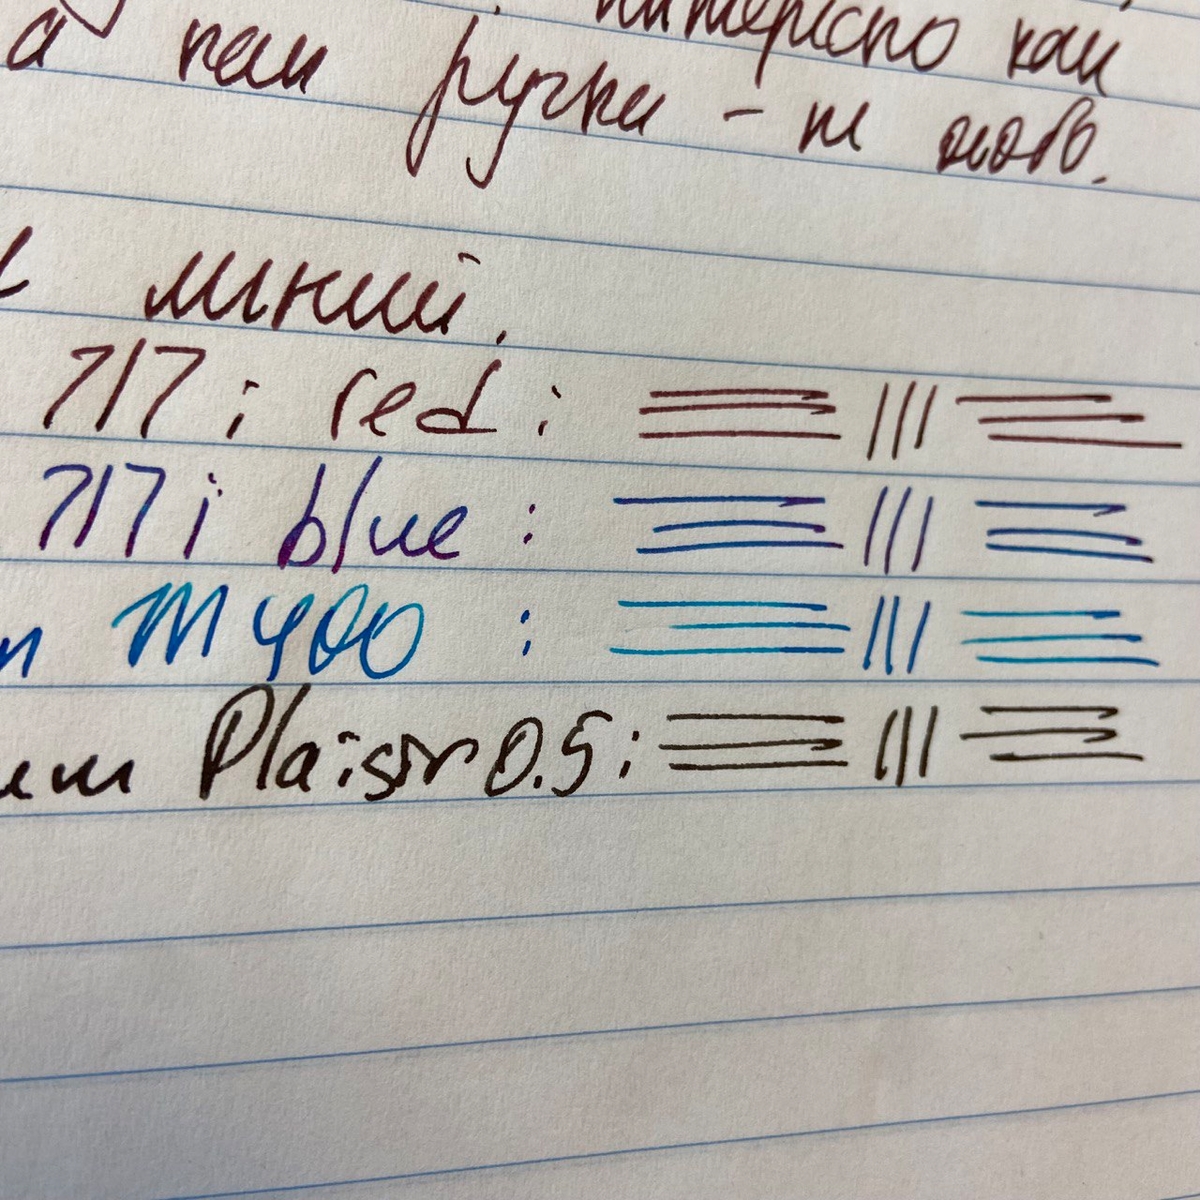 интересно как
а как ручка - не особ.
линий.
717i red:
717i blue:
M400:
Plaisir 0.5: